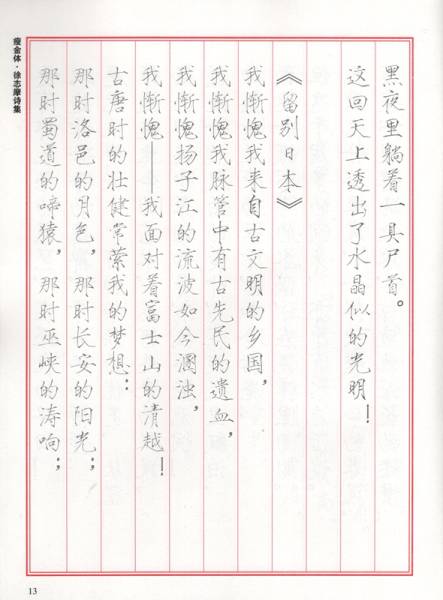 黑夜里躺着一具尸首。
这回天上透出了水晶似的光明！
《留别日本》
我惭愧我来自古文明的乡国，
我惭愧我脉管中有古先民的遗血，
我惭愧扬子江的流波如今溷浊，
我惭愧——我面对着富士山的清越！
古唐时的壮健常萦我的梦想：
那时洛邑的月色，那时长安的阳光；
那时蜀道的啼猿，那时巫峡的涛响；
瘦金体·徐志摩诗集
13